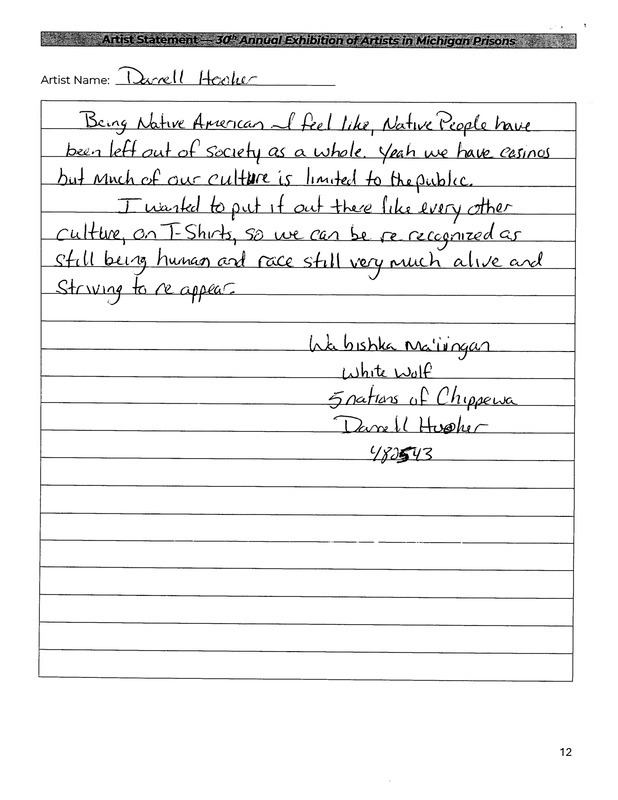 Artist Statement — 30th Annual Exhibition of Artists in Michigan Prisons
Artist Name: Darrell Hooher
Being Native American I feel like, Native People have
been left out of society as a whole. Yeah we have casinos
but much of our culture is limited to the public.
I wanted to put it out there like every other
culture, on T-Shirts, so we can be re recognized as
still being human and race still very much alive and
Striving to re appear.
Wabishka Ma'iingan
White Wolf
5 nations of Chippewa
Darrell Hooher
482543
12